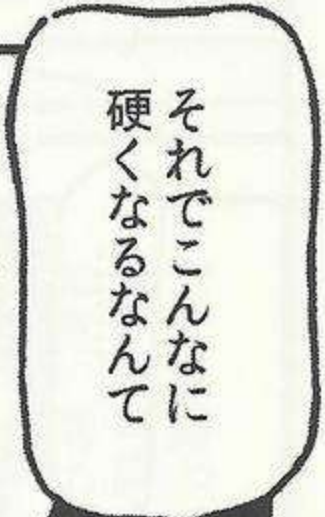 それでこんなに
硬くなるなんて